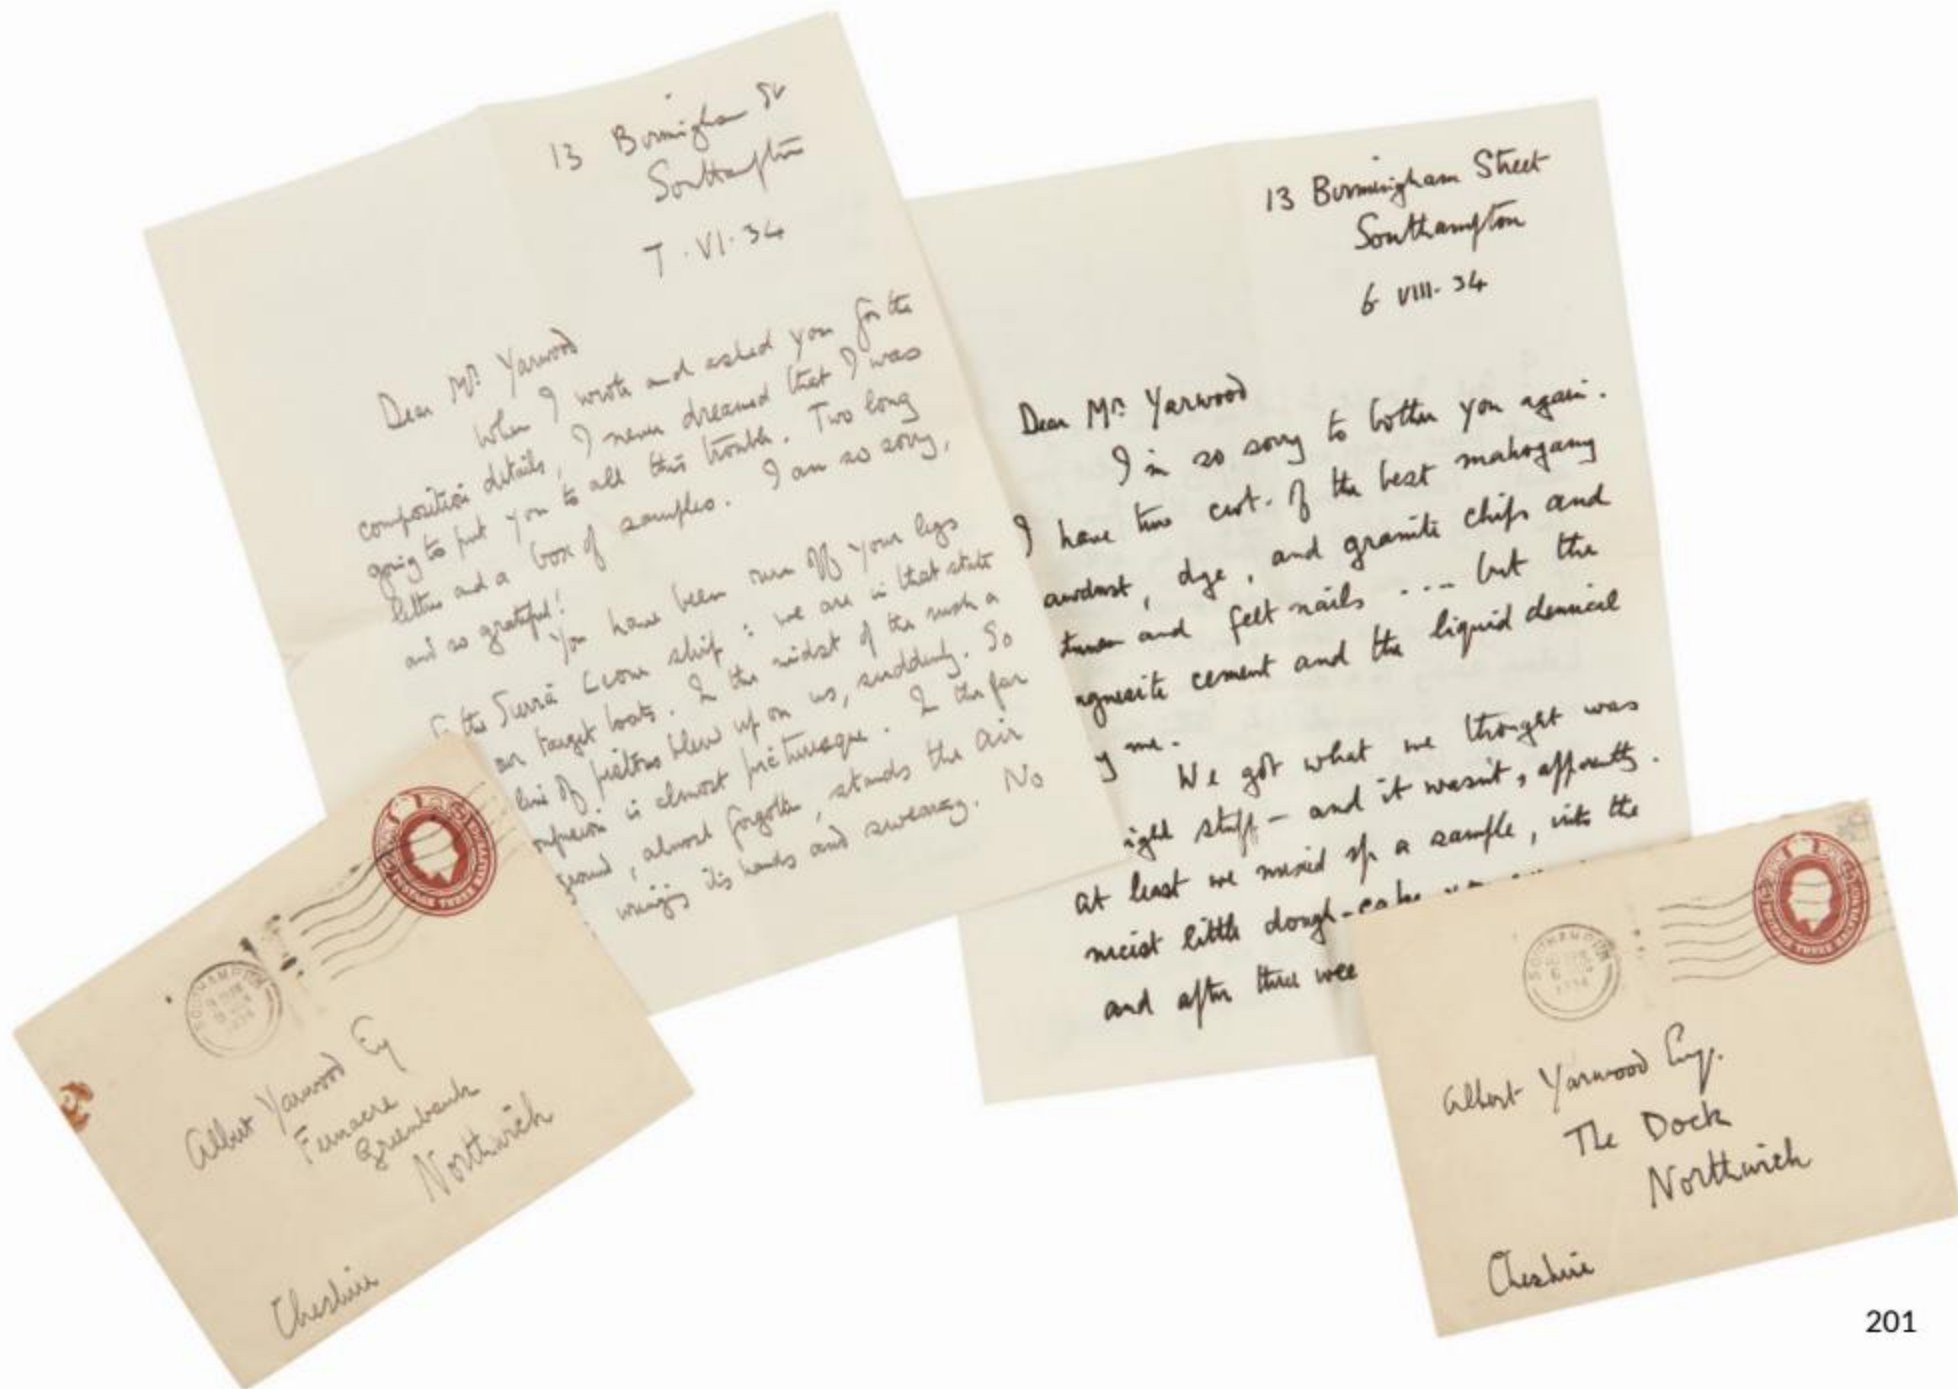 13 Birmingham St
Southampton
7.VI.34
Dear Mr. Yarwood
When I wrote and asked you for the
composition details, I never dreamed that I was
going to put you to all this trouble. Two long
letters and a box of samples. I am so sorry,
and so grateful!
You have been run off your legs
the Sierra Leone ship: we are in that state
target boats. In the midst of the rush a
line of pistons blew up on us, suddenly. So
is almost picturesque. In the far
ground, almost forgotten, stands the Air
wringing its hands and swearing. No
13 Birmingham Street
Southampton
6 VIII. 34
Dear Mr. Yarwood
I'm so sorry to bother you again.
I have two cwt. of the best mahogany
awdust, dye, and granite chips and
and felt nails .... but the
agnesite cement and the liquid chemical
y me.
We got what we thought was
ight stuff – and it wasn't, apparently.
at least we mixed up a sample, into the
nicest little dough-cake
and after three wee
SOUTHAMPTON
1934
POSTAGE THREE HALFPENCE
Albert Yarwood Esq
Fernacre
Greenbank
Northwich
Cheshire
SOUTHAMPTON
1934
POSTAGE THREE HALFPENCE
Albert Yarwood Esq.
The Dock
Northwich
Cheshire
201